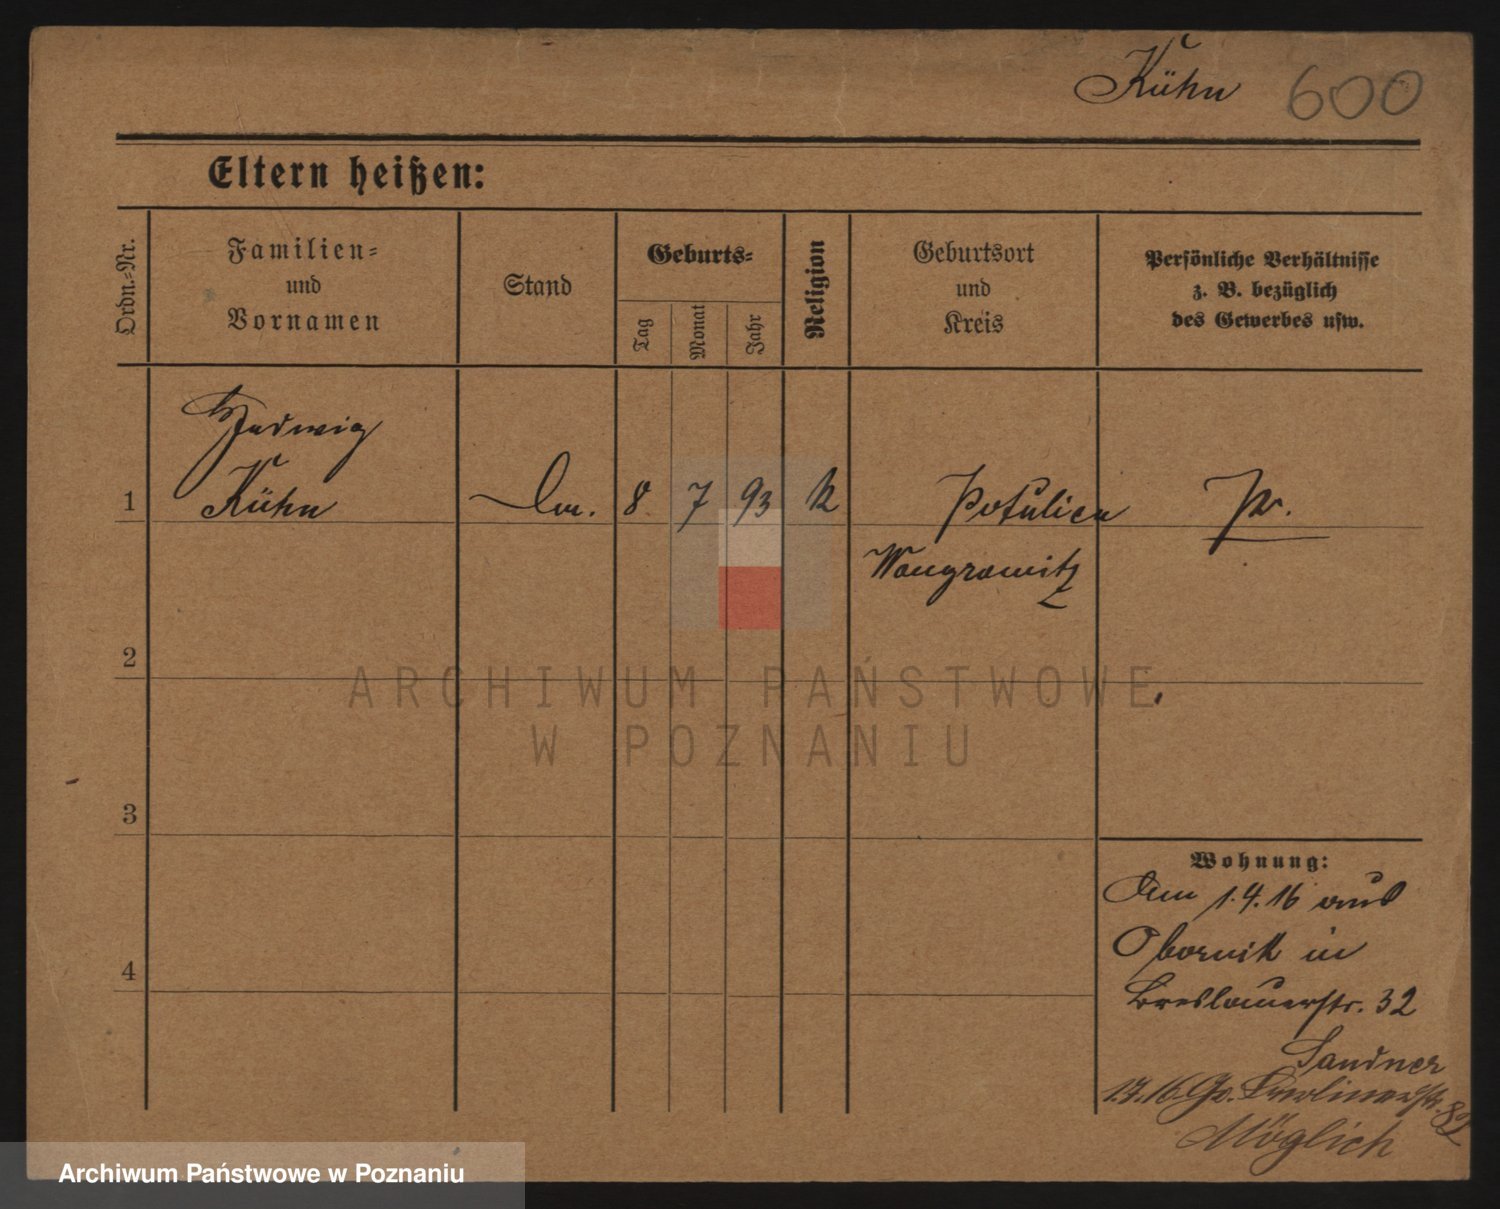 Kühn 600
Eltern heißen:
Ordn.-Nr.
Familien- und Vornamen
Stand
Geburts-
Tag
Monat
Jahr
Religion
Geburtsort und Kreis
Persönliche Verhältnisse z. B. bezüglich des Gewerbes usw.
Hedwig
1 Kühn 8 7 93 k Potulice Pr.
Wongrowitz
2
ARCHIWUM PAŃSTWOWE
W POZNANIU
3
Wohnung:
1.4.16 aus
4 Obornik in
Breslauerstr. 32
Sandner
1.7.16 Gr. Berlinerstr. 82
Möglich
Archiwum Państwowe w Poznaniu